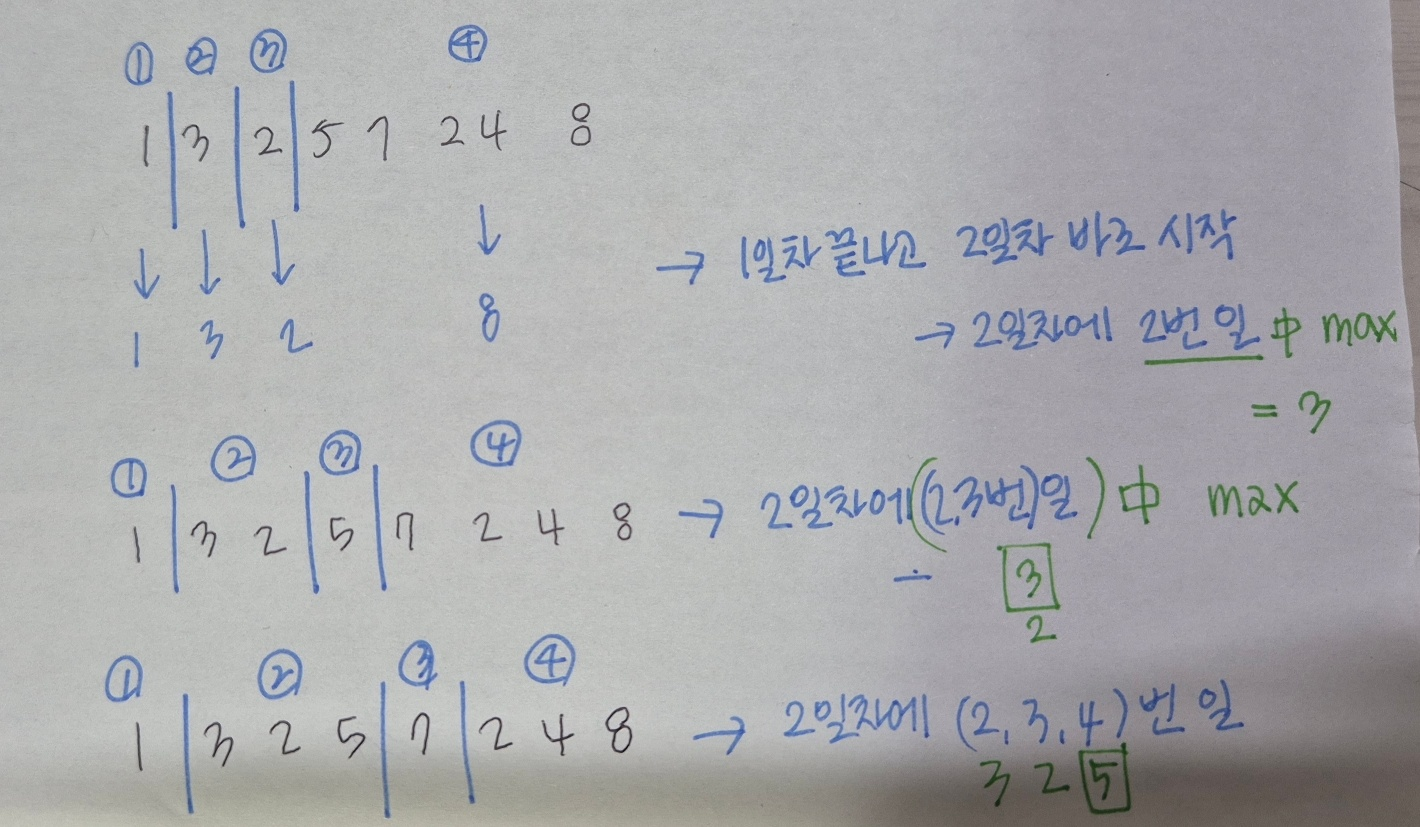 ① ② ③ ④
1 | 3 | 2 | 5 7 2 4 8
↓ ↓ ↓ ↓
1 3 2 8
→ 1일차 끝나고 2일차 바로 시작
→ 2일차에 2번 일 中 max
= 3
① ② ③ ④
1 | 3 2 | 5 | 7 2 4 8 → 2일차에 ((2,3번)일) 中 max
3
2
① ② ③ ④
1 | 3 2 5 | 7 | 2 4 8 → 2일차에 (2, 3, 4) 번 일
3 2 5